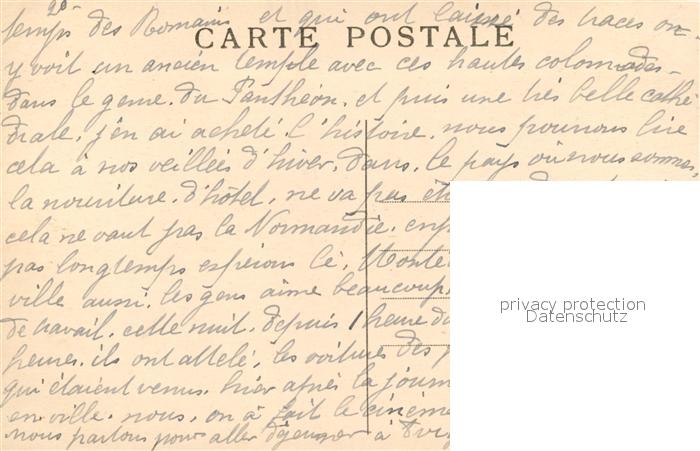 2e
temps des Romains et qui ont laissé des traces on
CARTE POSTALE
y voit un ancien temple avec ces hautes colonnades
dans le genre du Panthéon. et puis une très belle cathé
drale. j'en ai acheté l'histoire. nous pourrons lire
cela à nos veillées d'hiver. dans le pays où nous sommes,
la nouriture d'hôtel, ne va pas
cela ne vaut pas la Normandie.
pas longtemps espérons le.
ville aussi. les gens aime beaucoup
de travail. cette nuit. depuis 1 heure du
heures. ils ont attelé. les voitures des
qui étaient venus. hier après la
en ville. nous, on a fait le
nous partons pour aller déjeuner à
privacy protection
Datenschutz